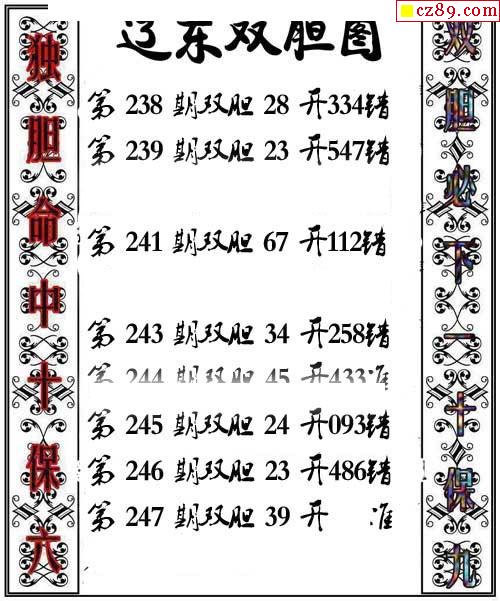 cz89.com
辽东双胆图
独胆命中十保六
第 238 期双胆 28 开334错
第 239 期双胆 23 开547错
第 241 期双胆 67 开112错
第 243 期双胆 34 开258错
第 244 期双胆 45 开433准
第 245 期双胆 24 开093错
第 246 期双胆 23 开486错
第 247 期双胆 39 开 准
双胆必下一十保九